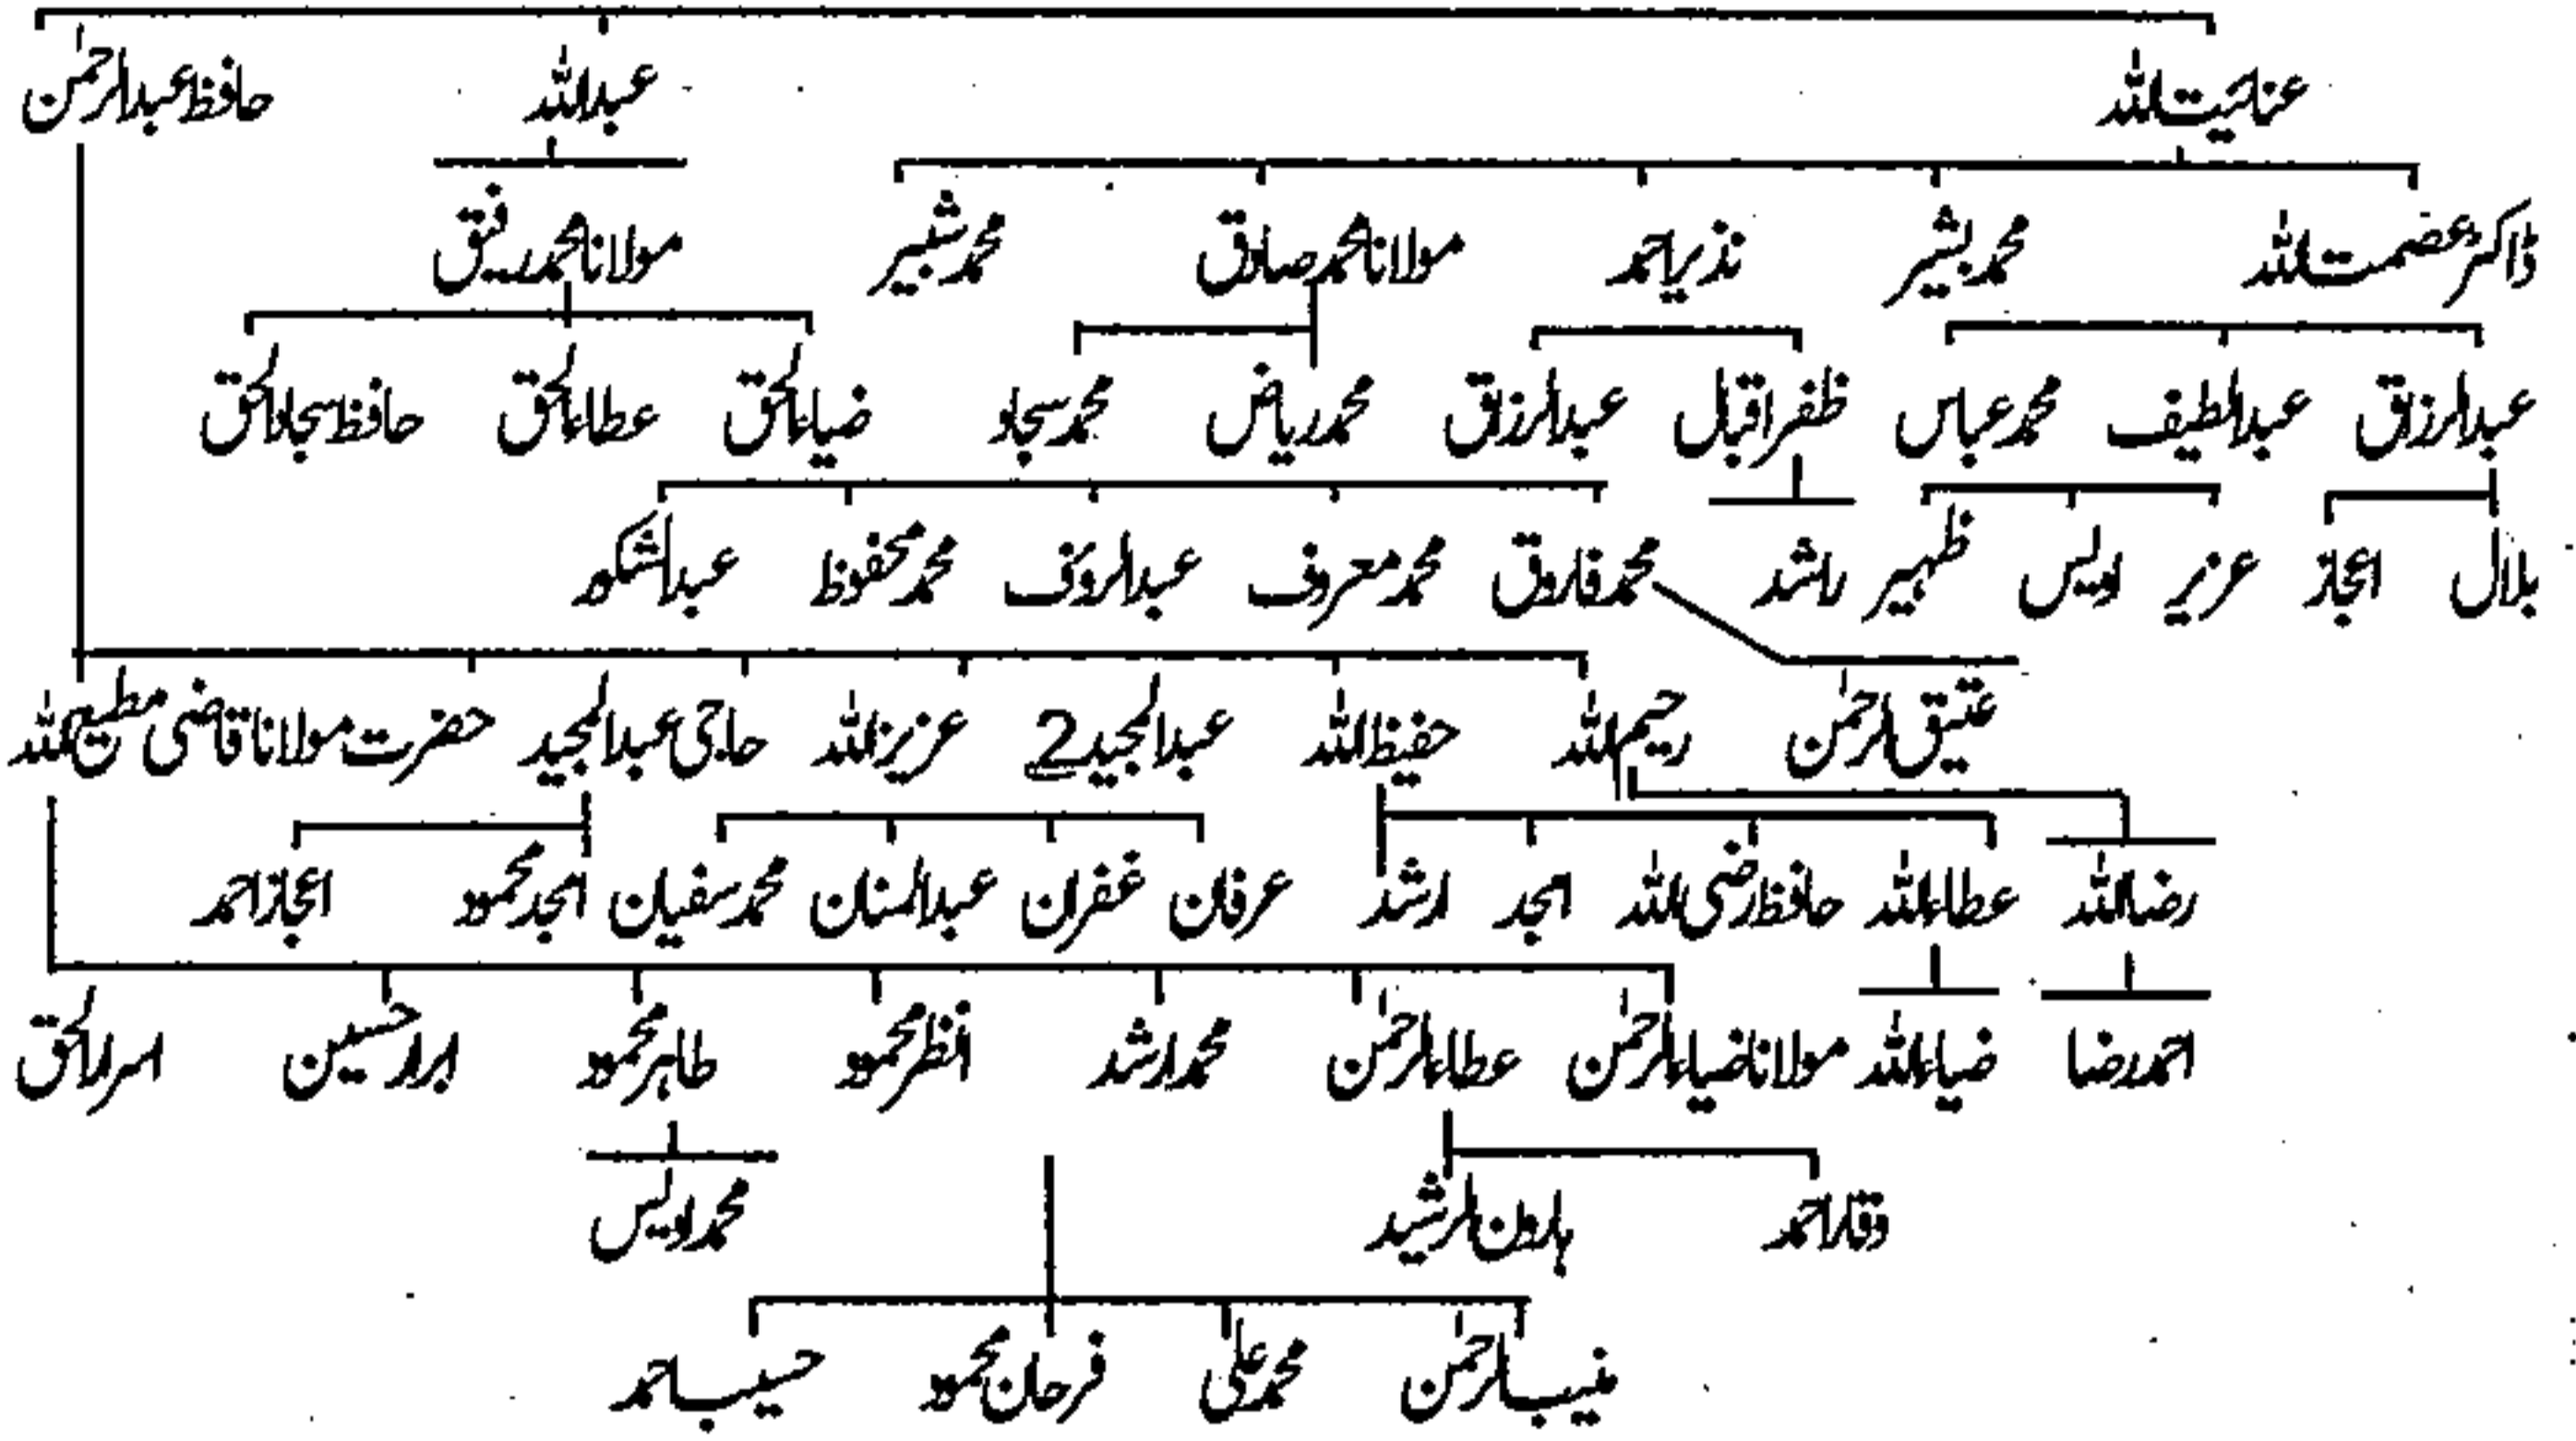 عنائیت اللہ عبداللہ حافظ عبدالرحمٰن
ڈاکٹر عصمت اللہ محمد بشیر نذیر احمد مولانا محمد صادق محمد شبیر مولانا محمد رفیق
عبدالرزاق عبدالطیف محمد عباس ظفر اقبال عبدالرزاق محمد ریاض محمد سجاد ضیاءالحق عطاءالحق حافظ سجاد الحق
بلال اعجاز عزیر اویس ظہیر راشد محمد فاروق محمد معروف عبدالروف محمد محفوظ عبدالشکور
عتیق الرحمٰن رحیم اللہ حفیظ اللہ عبدالمجید2 عزیز اللہ حاجی عبدالمجید حضرت مولانا قاضی مطیع اللہ
رضا اللہ عطاء اللہ حافظ رضی اللہ امجد ارشد عرفان غفران عبدالمنان محمد سفیان امجد محمود اعجاز احمد
احمد رضا ضیاء اللہ مولانا ضیاء الرحمٰن عطاء الرحمٰن محمد ارشد اظہر محمود طاہر محمود ابرار حسین اسرار الحق
وقار احمد ہارون الرشید محمد اویس
منیب الرحمٰن محمد علی فرحان محمود حسیب احمد